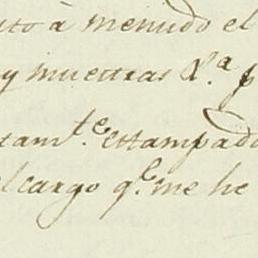 uto à menudo el
y muestras R.ª p
tam.te estampado
l cargo q.e me he